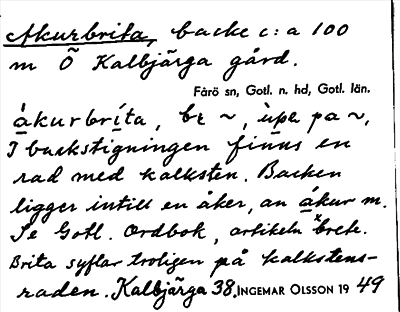 Akurbrita, backe c:a 100
m Ö Kalbjärga gård.
Fårö sn, Gotl. n. hd, Gotl. län.
ákurbríta, br ~, upe pa ~,
I backstigningen finns en
rad med kalksten. Backen
ligger intill en åker, an ákur m.
Se Gotl. Ordbok, artikeln
Brita syftar troligen på kalkstens-
raden. Kalbjärga 38. INGEMAR OLSSON 1949